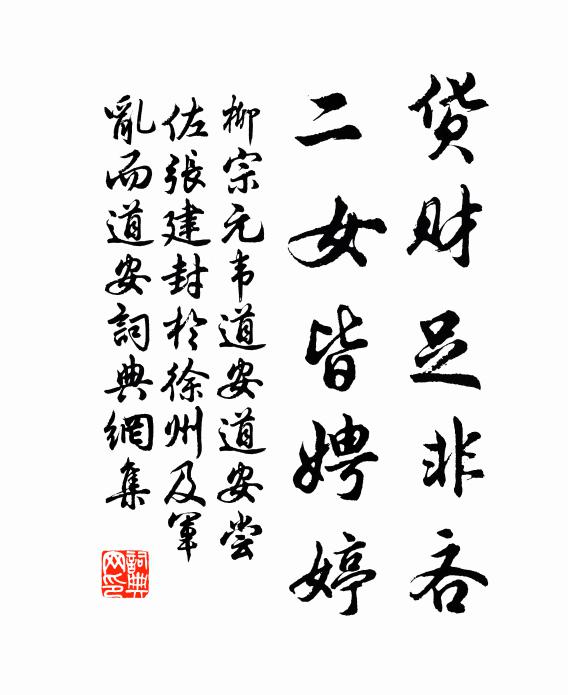 货财足非吝
二女皆娉婷
柳宗元韦道安道安尝
佐張建封於徐州及軍
亂而道安詞典網集
詞典网印